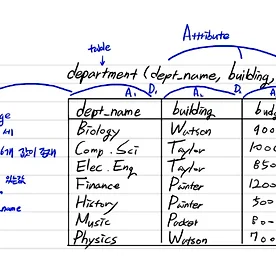 Attribute
table
department (dept_name, building,
A. D. A. D. A
dept_name building budg
Biology Watson 900
Comp. Sci Taylor 1000
Elec. Eng Taylor 850
Finance Painter 1200
History Painter 500
Music Packat 80
Physics Watson 700
값이 존재
name